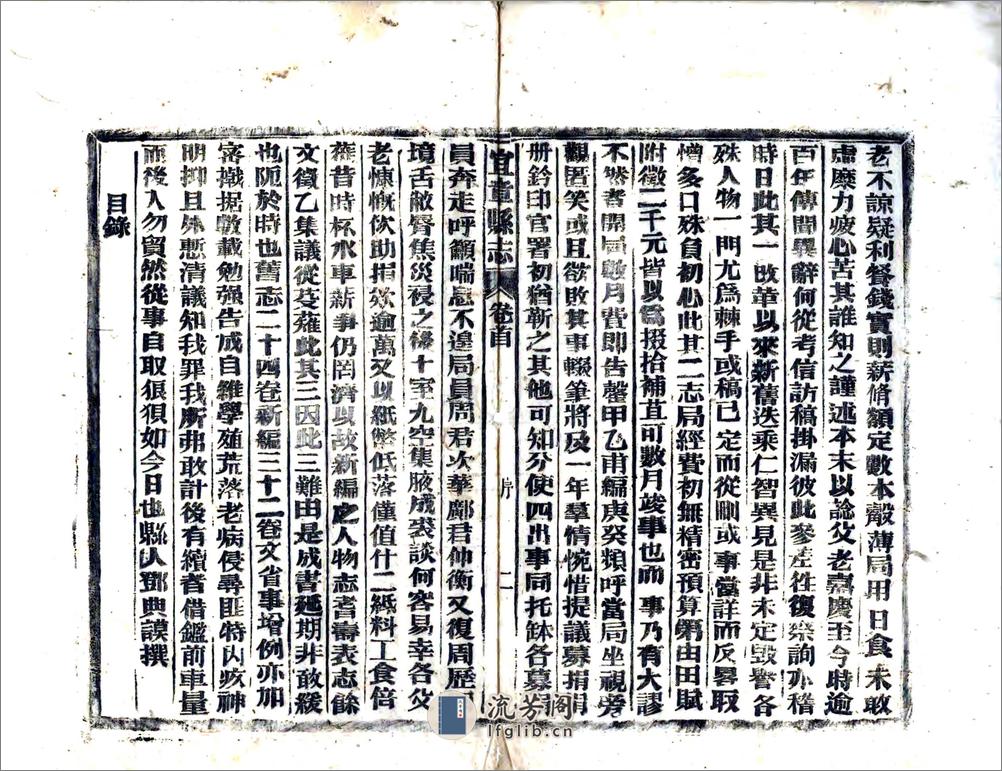 老不諒疑利餐錢實則薪脩額定數本瀫薄局用日食未敢
虛糜力疲心苦其誰知之謹述本末以諗父老嘉慶至今時逾
百年傳聞異辭何從考信訪稿掛漏彼此參差往復察詢亦稽
時日此其一改革以來新舊迭乘仁智異見是非未定毀譽各
殊人物一門尤爲棘手或稿已定而從刪或事當詳而反畧取
憎多口殊負初心此其二志局經費初無精密預算第由田賦
附徵二千元皆以爲掇拾補苴可數月竣事也而事乃有大謬
不然者開局數月費即告罄甲乙甫編庚癸頻呼當局坐視旁
觀匿笑或且欲敗其事輟筆將及一年羣情惋惜提議募捐
册鈐印官署初猶靳之其他可知分使四出事同托鉢各募
宜章縣志 卷首 序 二
員奔走呼籲喘息不遑局員周君次華鄺君仲衡又復周歷
境舌敝脣焦災祲之餘十室九空集腋成裘談何容易幸各父
老慷慨佽助捐欵逾萬又以紙幣低落僅值什二紙料工食倍
蓰昔時杯水車薪事仍罔濟以故新編之人物志耆壽表志餘
文徵乙集議從芟薙此其三因此三難由是成書延期非敢緩
也阨於時也舊志二十四卷新編三十二卷文省事增例亦加
審摭据數載勉强告成自維學殖荒落老病侵尋匪特內疚神
明抑且殊慙清議知我罪我所弗敢計後有續者借鑑前車量
而後入勿貿然從事自取狼狽如今日也縣人鄧典謨撰
目錄
流芳閣
lfglib.cn